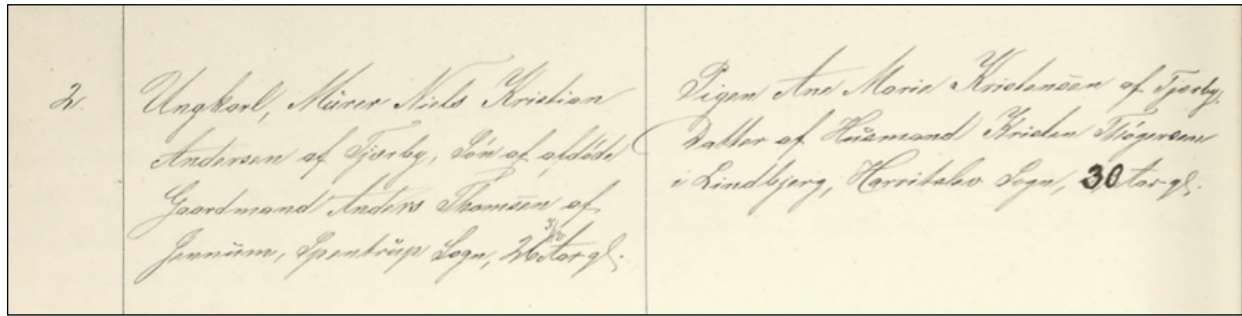 2.
Ungkarl, Mürer Niels Kristian
Andersen af Tjærby, Søn af afdøde
Gaardmand Anders Thomsen af
Jennum, Spentrüp Sogn, 26 Aar gl.
Pigen Ane Marie Kristensen af Tjærby,
Datter af Hüsmand Kristen Thøgersen
i Lindbjerg, Harritslev Sogn, 30 Aar gl.